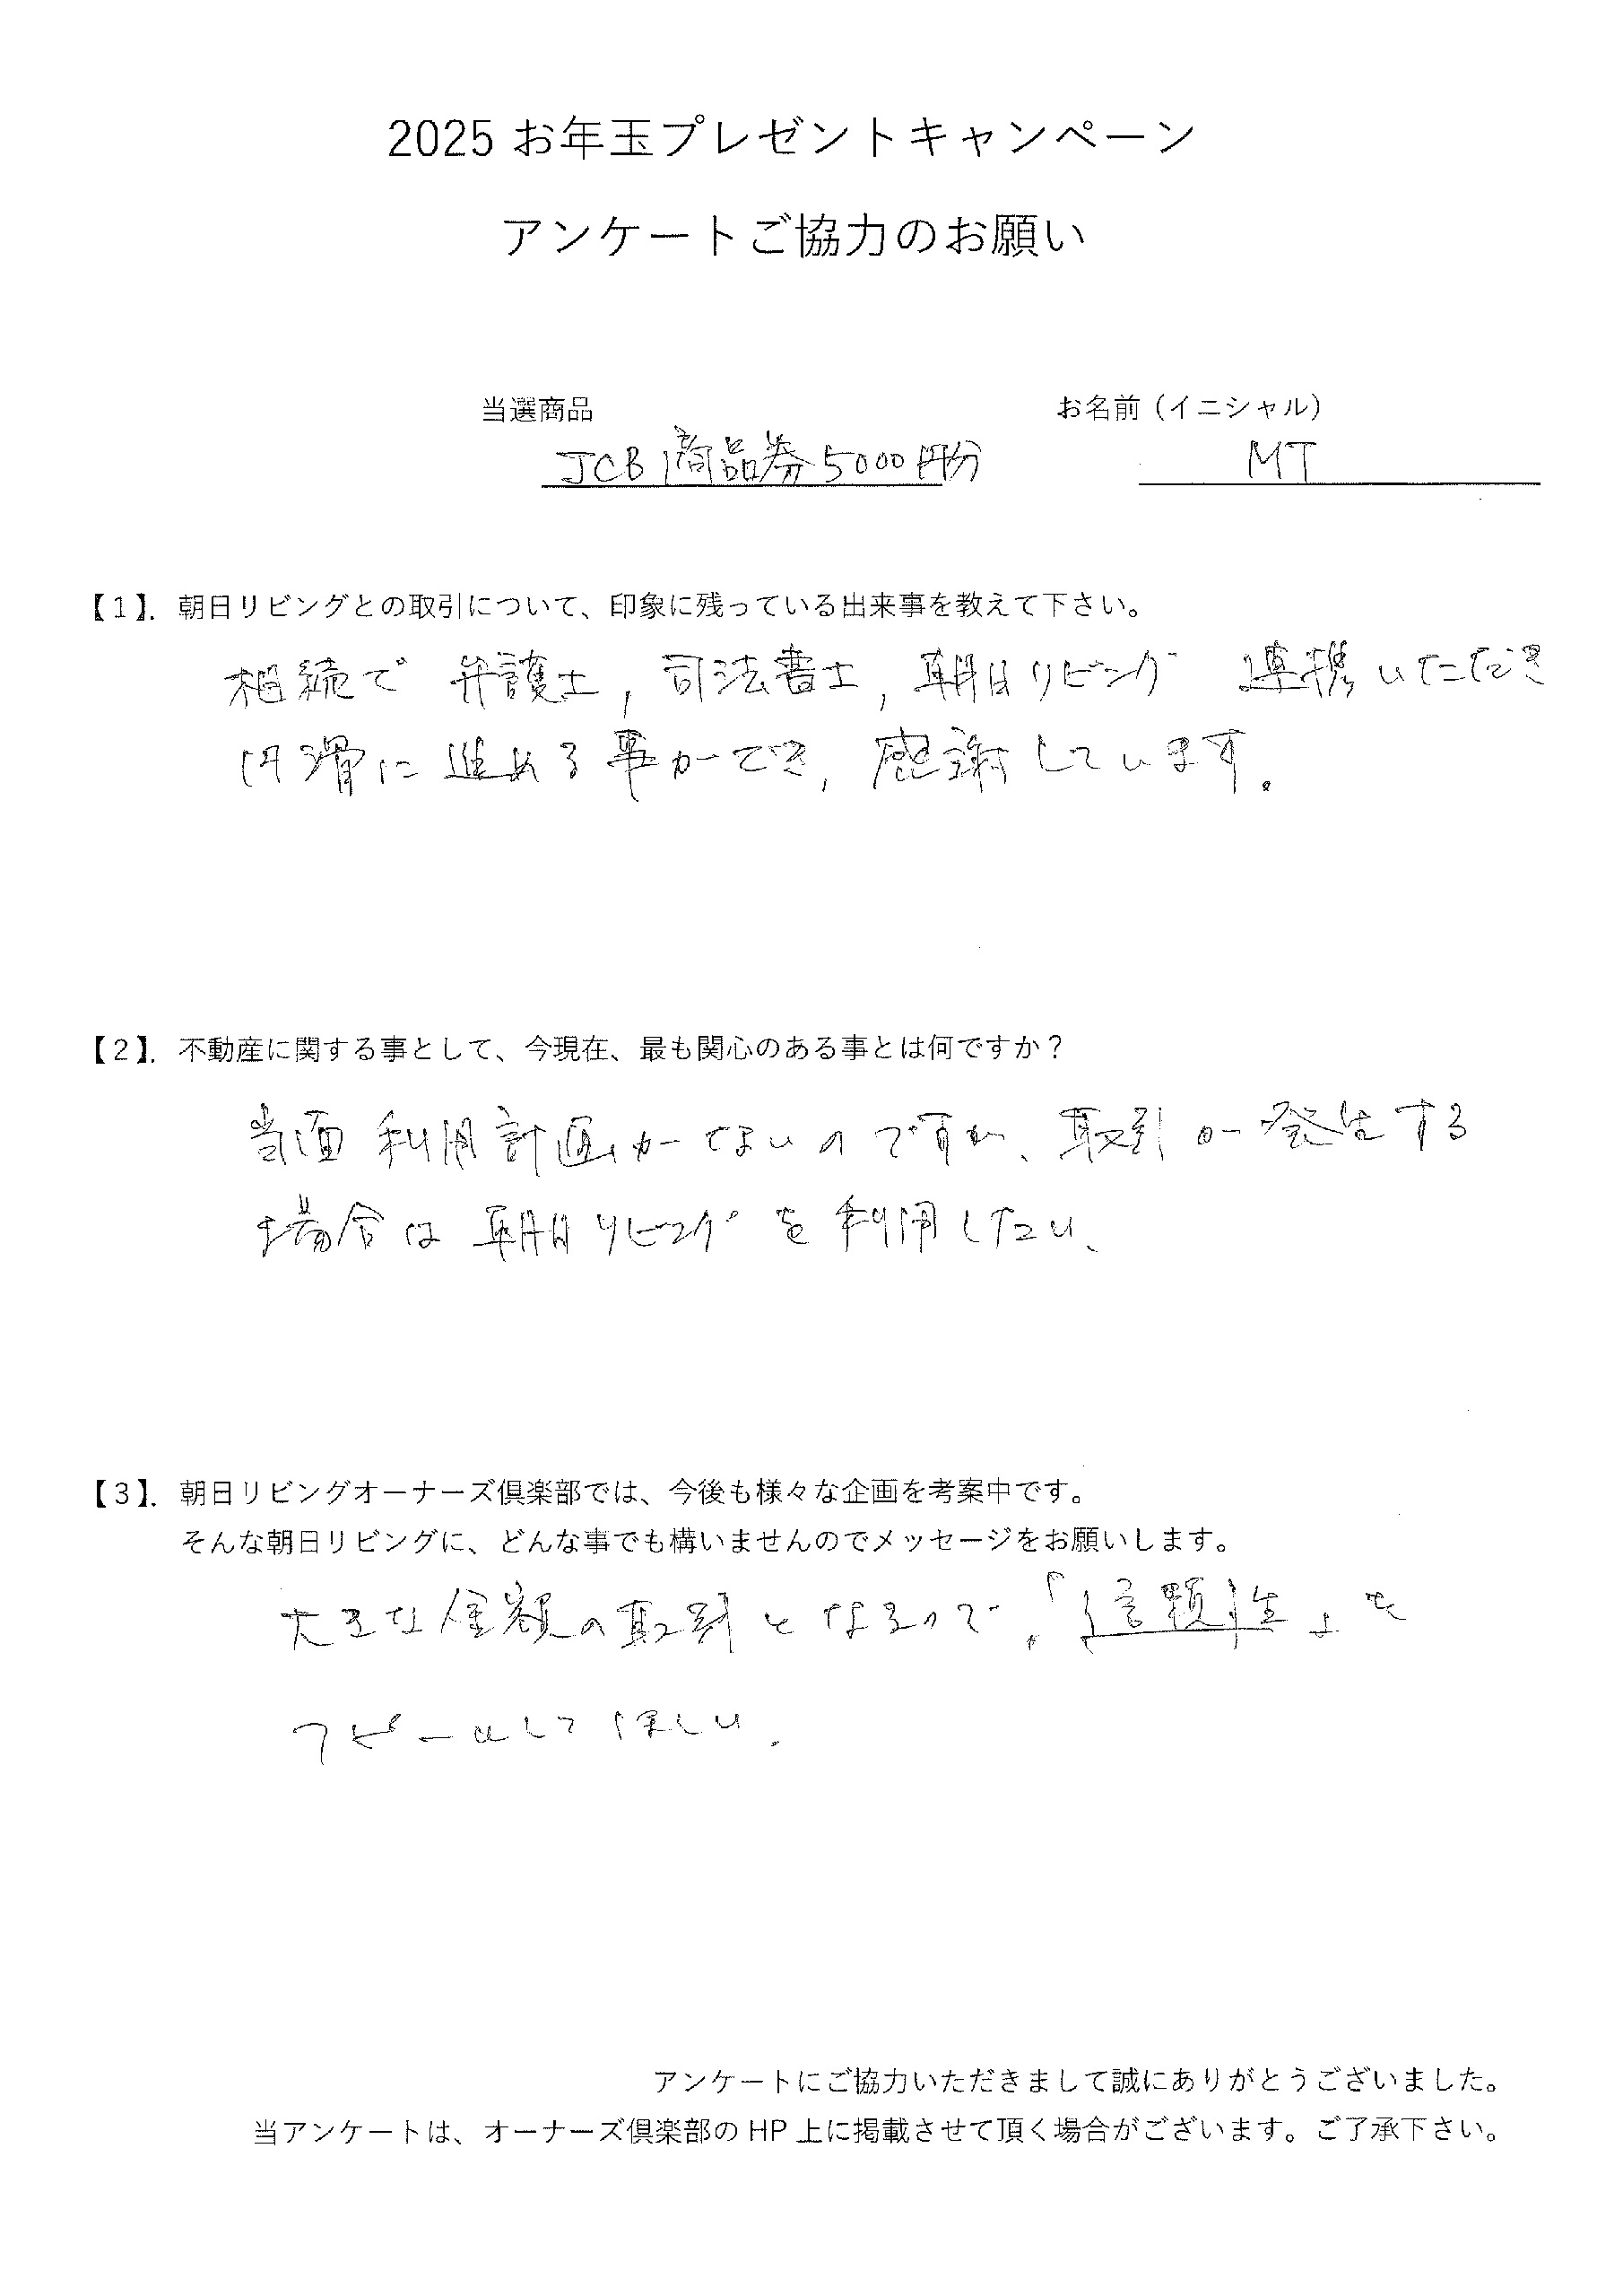 2025 お年玉プレゼントキャンペーン
アンケートご協力のお願い
当選商品 お名前（イニシャル）
JCB商品券5000円分 MT
【1】. 朝日リビングとの取引について、印象に残っている出来事を教えて下さい。
相続で 弁護士, 司法書士, 朝日リビング 連携いただき
円滑に 進める事ができ, 感謝しています。
【2】. 不動産に関する事として、今現在、最も関心のある事とは何ですか？
当面 利用計画がないのですが、取引が発生する
場合は 朝日リビングを利用したい、
【3】. 朝日リビングオーナーズ倶楽部では、今後も様々な企画を考案中です。
そんな朝日リビングに、どんな事でも構いませんのでメッセージをお願いします。
大きな金額の取引となるので,「信頼性」を
アピールしてほしい.
アンケートにご協力いただきまして誠にありがとうございました。
当アンケートは、オーナーズ倶楽部の HP 上に掲載させて頂く場合がございます。ご了承下さい。